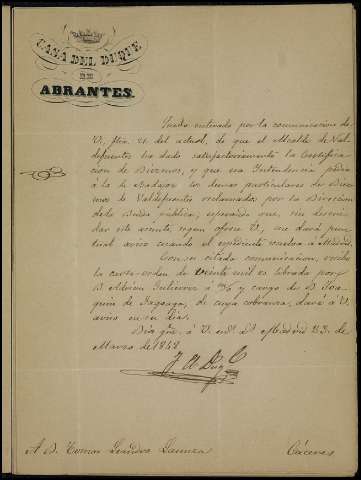 CASA DEL DUQUE
DE
ABRANTES.
Quedo enterado por la comunicacion de
V. fha. 21 del actual, de que el Alcalde de Val-
defuentes ha dado satisfactoriamente la Certifica-
cion de Diezmos, y que esa Intendencia pedirá
á la de Badajoz los demas particulares de Diez-
mos de Valdefuentes reclamados por la Direccion
de la Deuda pública, esperando que, sin descui-
dar este asunto, segun ofrece V., me dará pun-
tual aviso cuando el espediente vuelva á Madrid.
Con su citada comunicacion, recibo
la carta-orden de veinte mil rs librada por
D. Adrian Gutierrez á d/v y cargo de D. Joa-
quin de de cuya cobranza, dará á V.
aviso en su dia.
Dios gue. á V. ms. as. Madrid 23. de
Marzo de 1848
A D. Tomas Cáceres